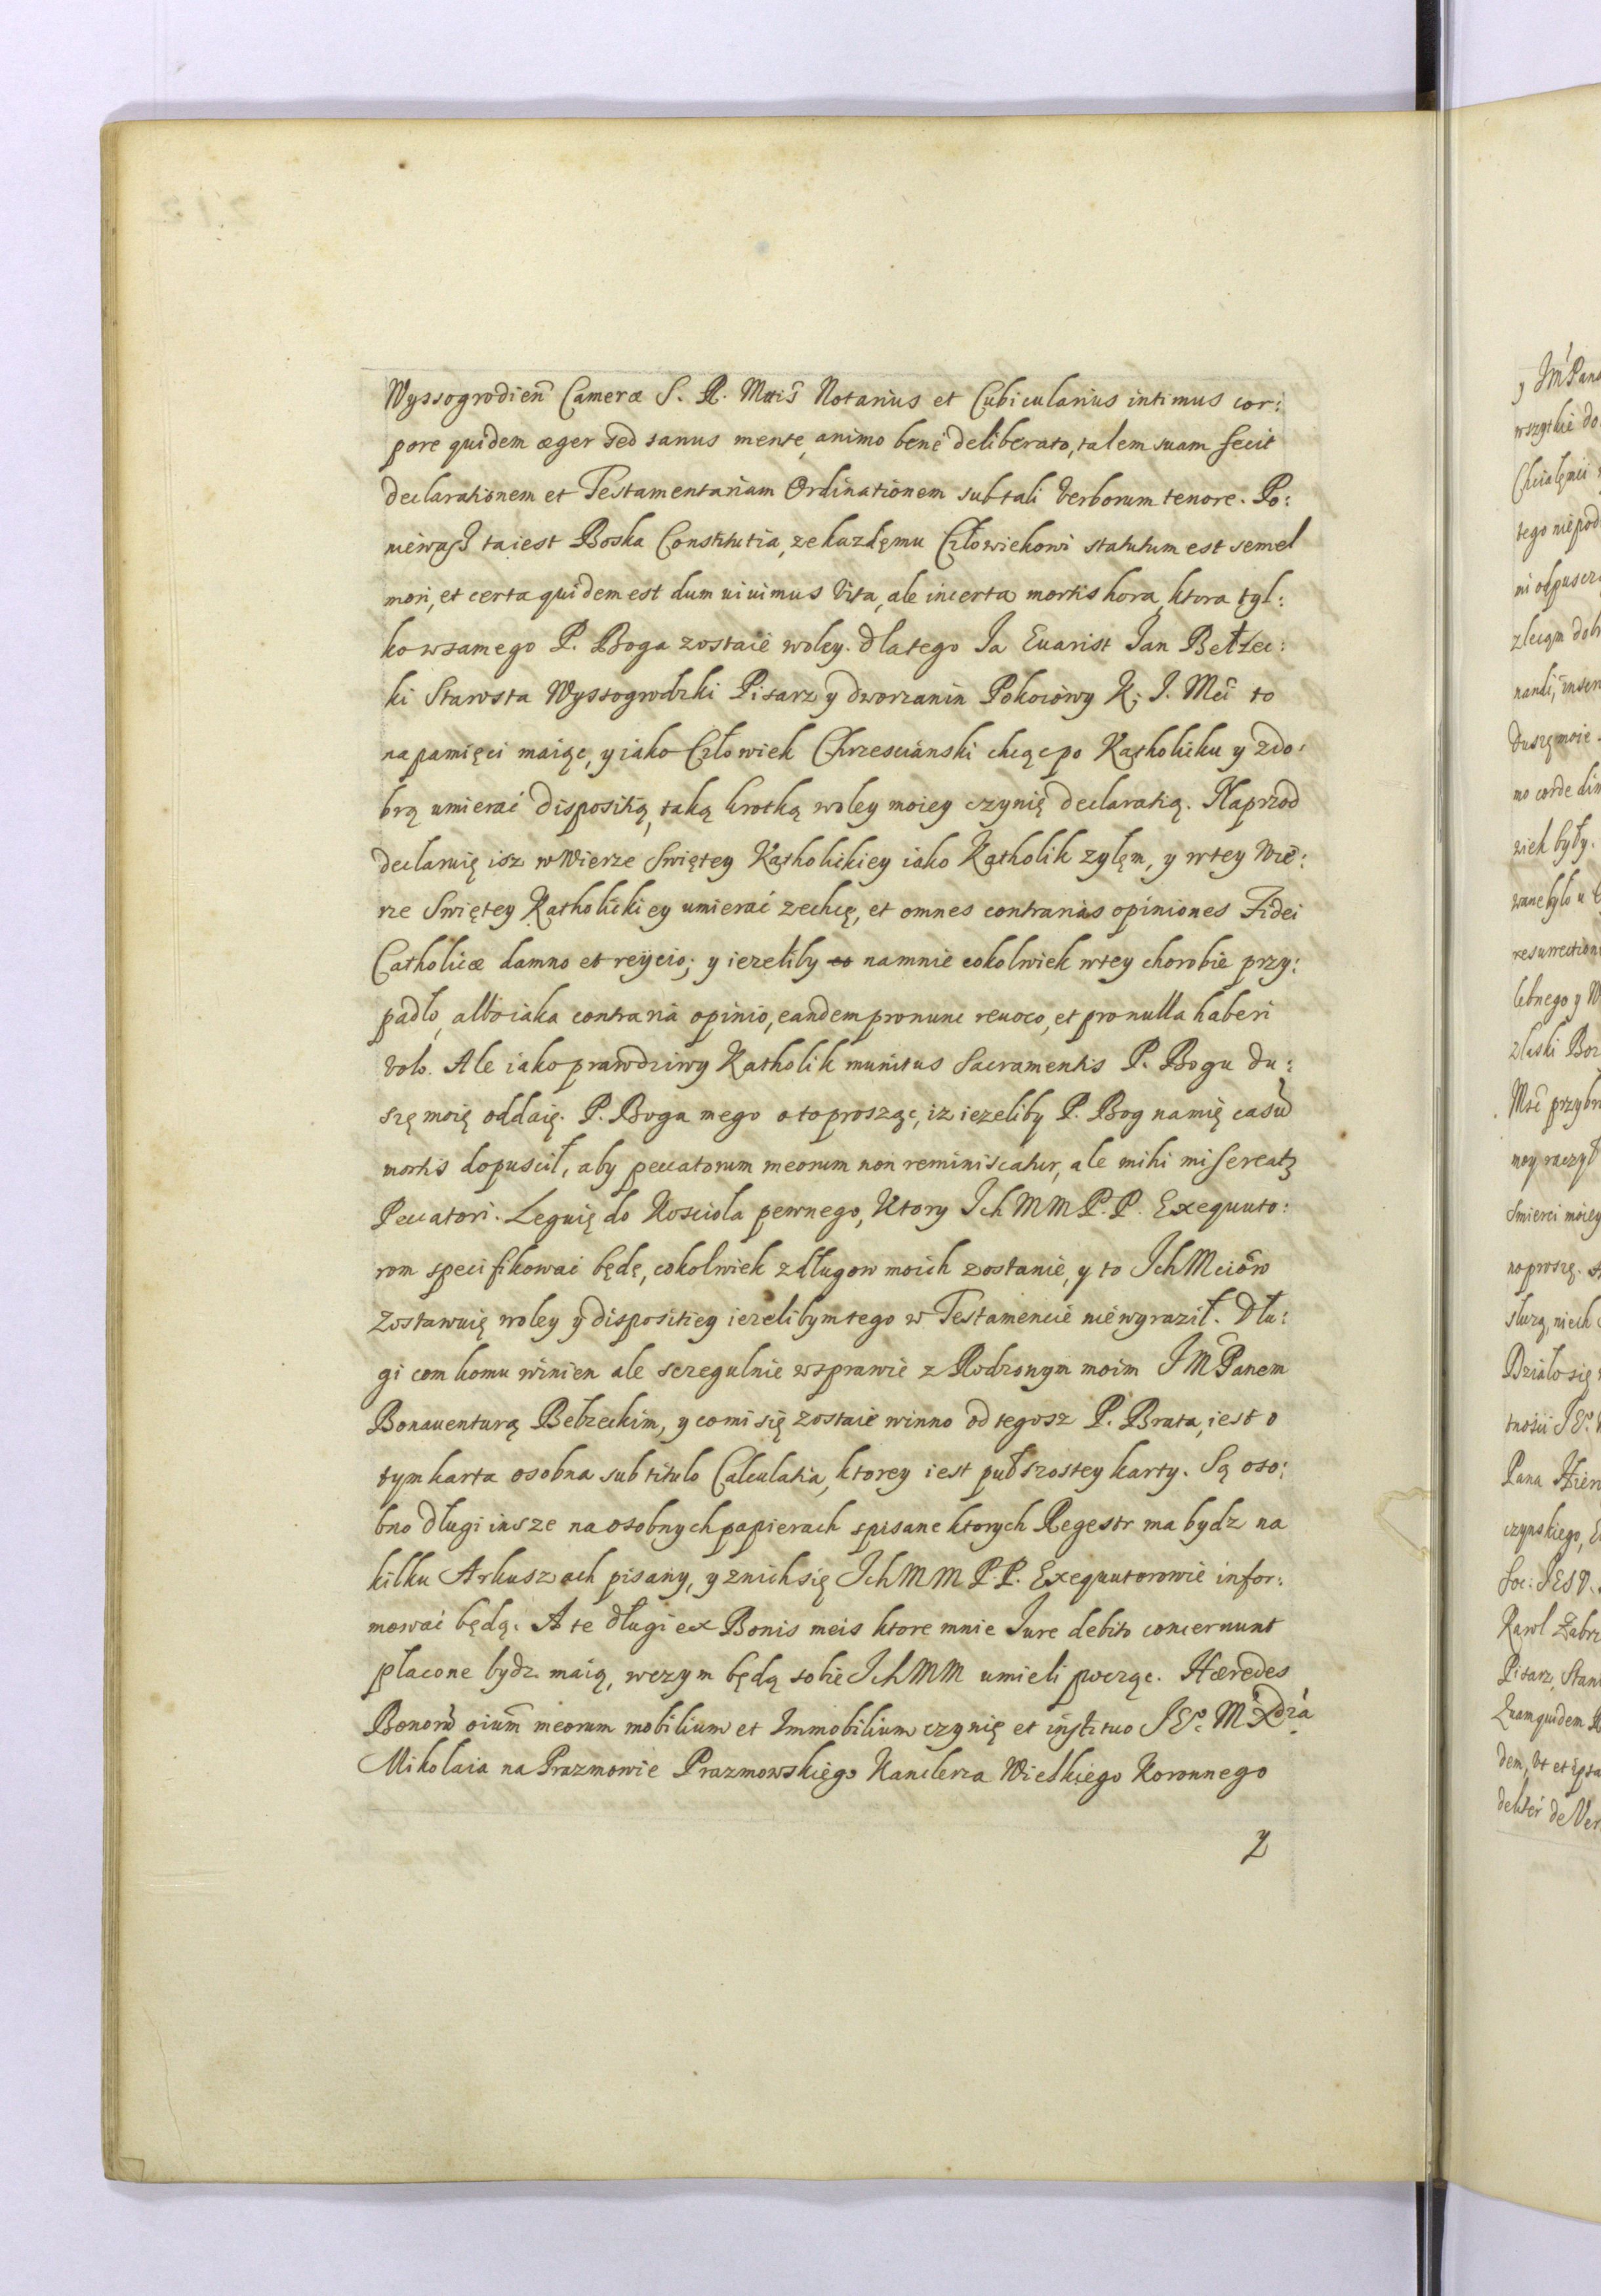 Wyssogrodien̄ Cameræ S. R. Mttis̄ Notarius et Cubicularius intimus cor:
pore quidem æger sed sanus mente, animo benè deliberato, talem suam fecit
declarationem et Testamentariam Ordinationem sub tali Verborum tenore. Po:
niewasz ta iest Boska Constitutia, ze kazdęmu Człowiekowi statutum est semel
mori, et certa quidem est dum uiuimus Vita, ale incerta mortis hora, ktora tyl:
ko w samego P. Boga zostaie woley. dla tego Ia Euarist Jan Bełzec:
ki Starosta Wyssogrodzki Pisarz y dworzanin Pokoiowy K. J. Mci to
na pamięci maiąc, y iako Człowiek Chrzescianski chcąc po Katholicku y z do:
brą umierać dispositią, taką krotką woley moiey czynię declaratią. Naprzod
declaruię isz w Wierze Swiętey Katholickiey iako Katholik zylęm, y w tey Wie:
rze Swiętey Katholickiey umierać zechcę, et omnes contrarias opiniones Fidei
Catholicæ damno et reÿcio; y iezeliby na mnie cokolwiek w tey chorobie przy:
padło, albo iaka contraria opinio, eandem pro nunc reuoco, et pro nulla haberi
volo. Ale iako prawdziwy Katholik munitus Sacramentis P. Bogu du:
szę moię oddaię. P. Boga mego o to prosząc, iz iezeliby P. Bog na mię casū
mortis dopuscił, aby peccatorum meorum non reminiscatur, ale mihi misereatꝫ
Peccatori. Leguię do Kosciola pewnego, Ktory Ich MM P. P. Exequuto:
rom specifikowac będę, cokolwiek z długow moich zostanie, y to Ich Mciow
zostawuię woley y dispositiey iezelibym tego w Testamencie nie wyraził. Dłu:
gi com komu winien ale szczegulnie w sprawie z Rodzonym moim J M Panem
Bonauenturą Bełzeckim, y co mi się zostaie winno od tegosz P. Brata, iest o
tym karta osobna sub titulo Calculatia, ktorey iest puł szostey karty. Są oso:
bno długi insze na osobnych papierach spisane ktorych Regestr ma bydz na
kilku Arkuszach pisany, y z nich się Ich MM P. P. Exequutorowie infor:
mowac będą. A te długi ex Bonis meis ktore mnie Jure debito concernunt
płacone bydz maią, w czym będą sobie Ich MM umieli począc. Hæredes
Bonorū oium̄ meorum mobilium et Immobilium czynię et instituo JEº. M. Xdza
Mikolaia na Prazmowie Prazmowskięgo Kanclerza Wielkięgo Koronnego
y